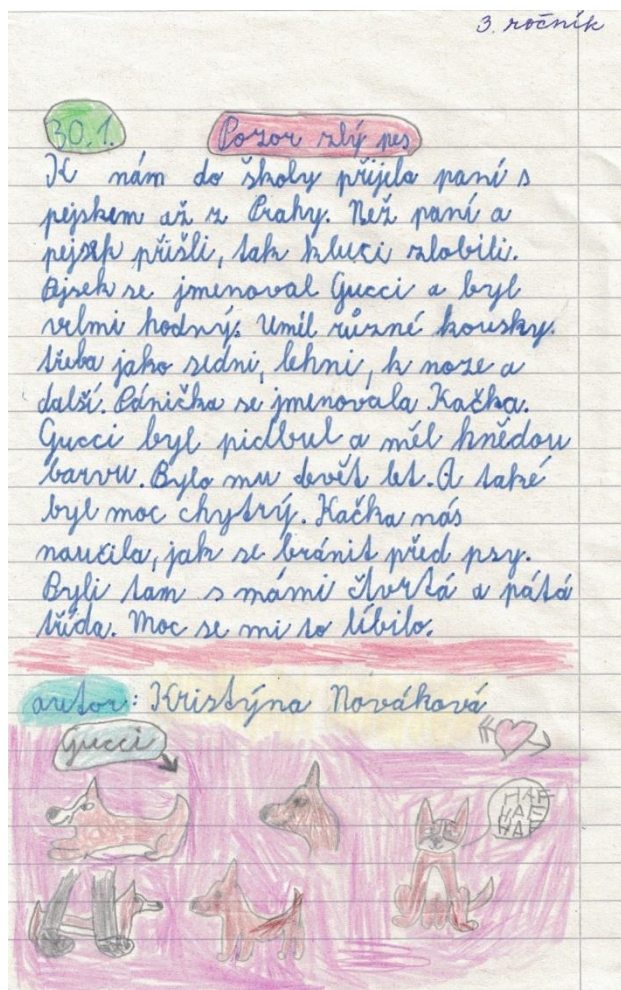 3. ročník
30.1. Pozor zlý pes
K nám do školy přijela paní s
pejskem až z Prahy. Než paní a
pejsek přišli, tak kluci zlobili.
Pejsek se jmenoval Gucci a byl
velmi hodný. Uměl různé kousky.
třeba jako sedni, lehni, k noze a
další. Pánička se jmenovala Kačka.
Gucci byl pidbul a měl hnědou
barvu. Bylo mu devět let. A také
byl moc chytrý. Kačka nás
naučila, jak se bránit před psy.
Byli tam s námi čtvrtá a pátá
třída. Moc se mi to líbilo.
autor: Kristýna Nováková
Gucci
HAF
HAF
HAF